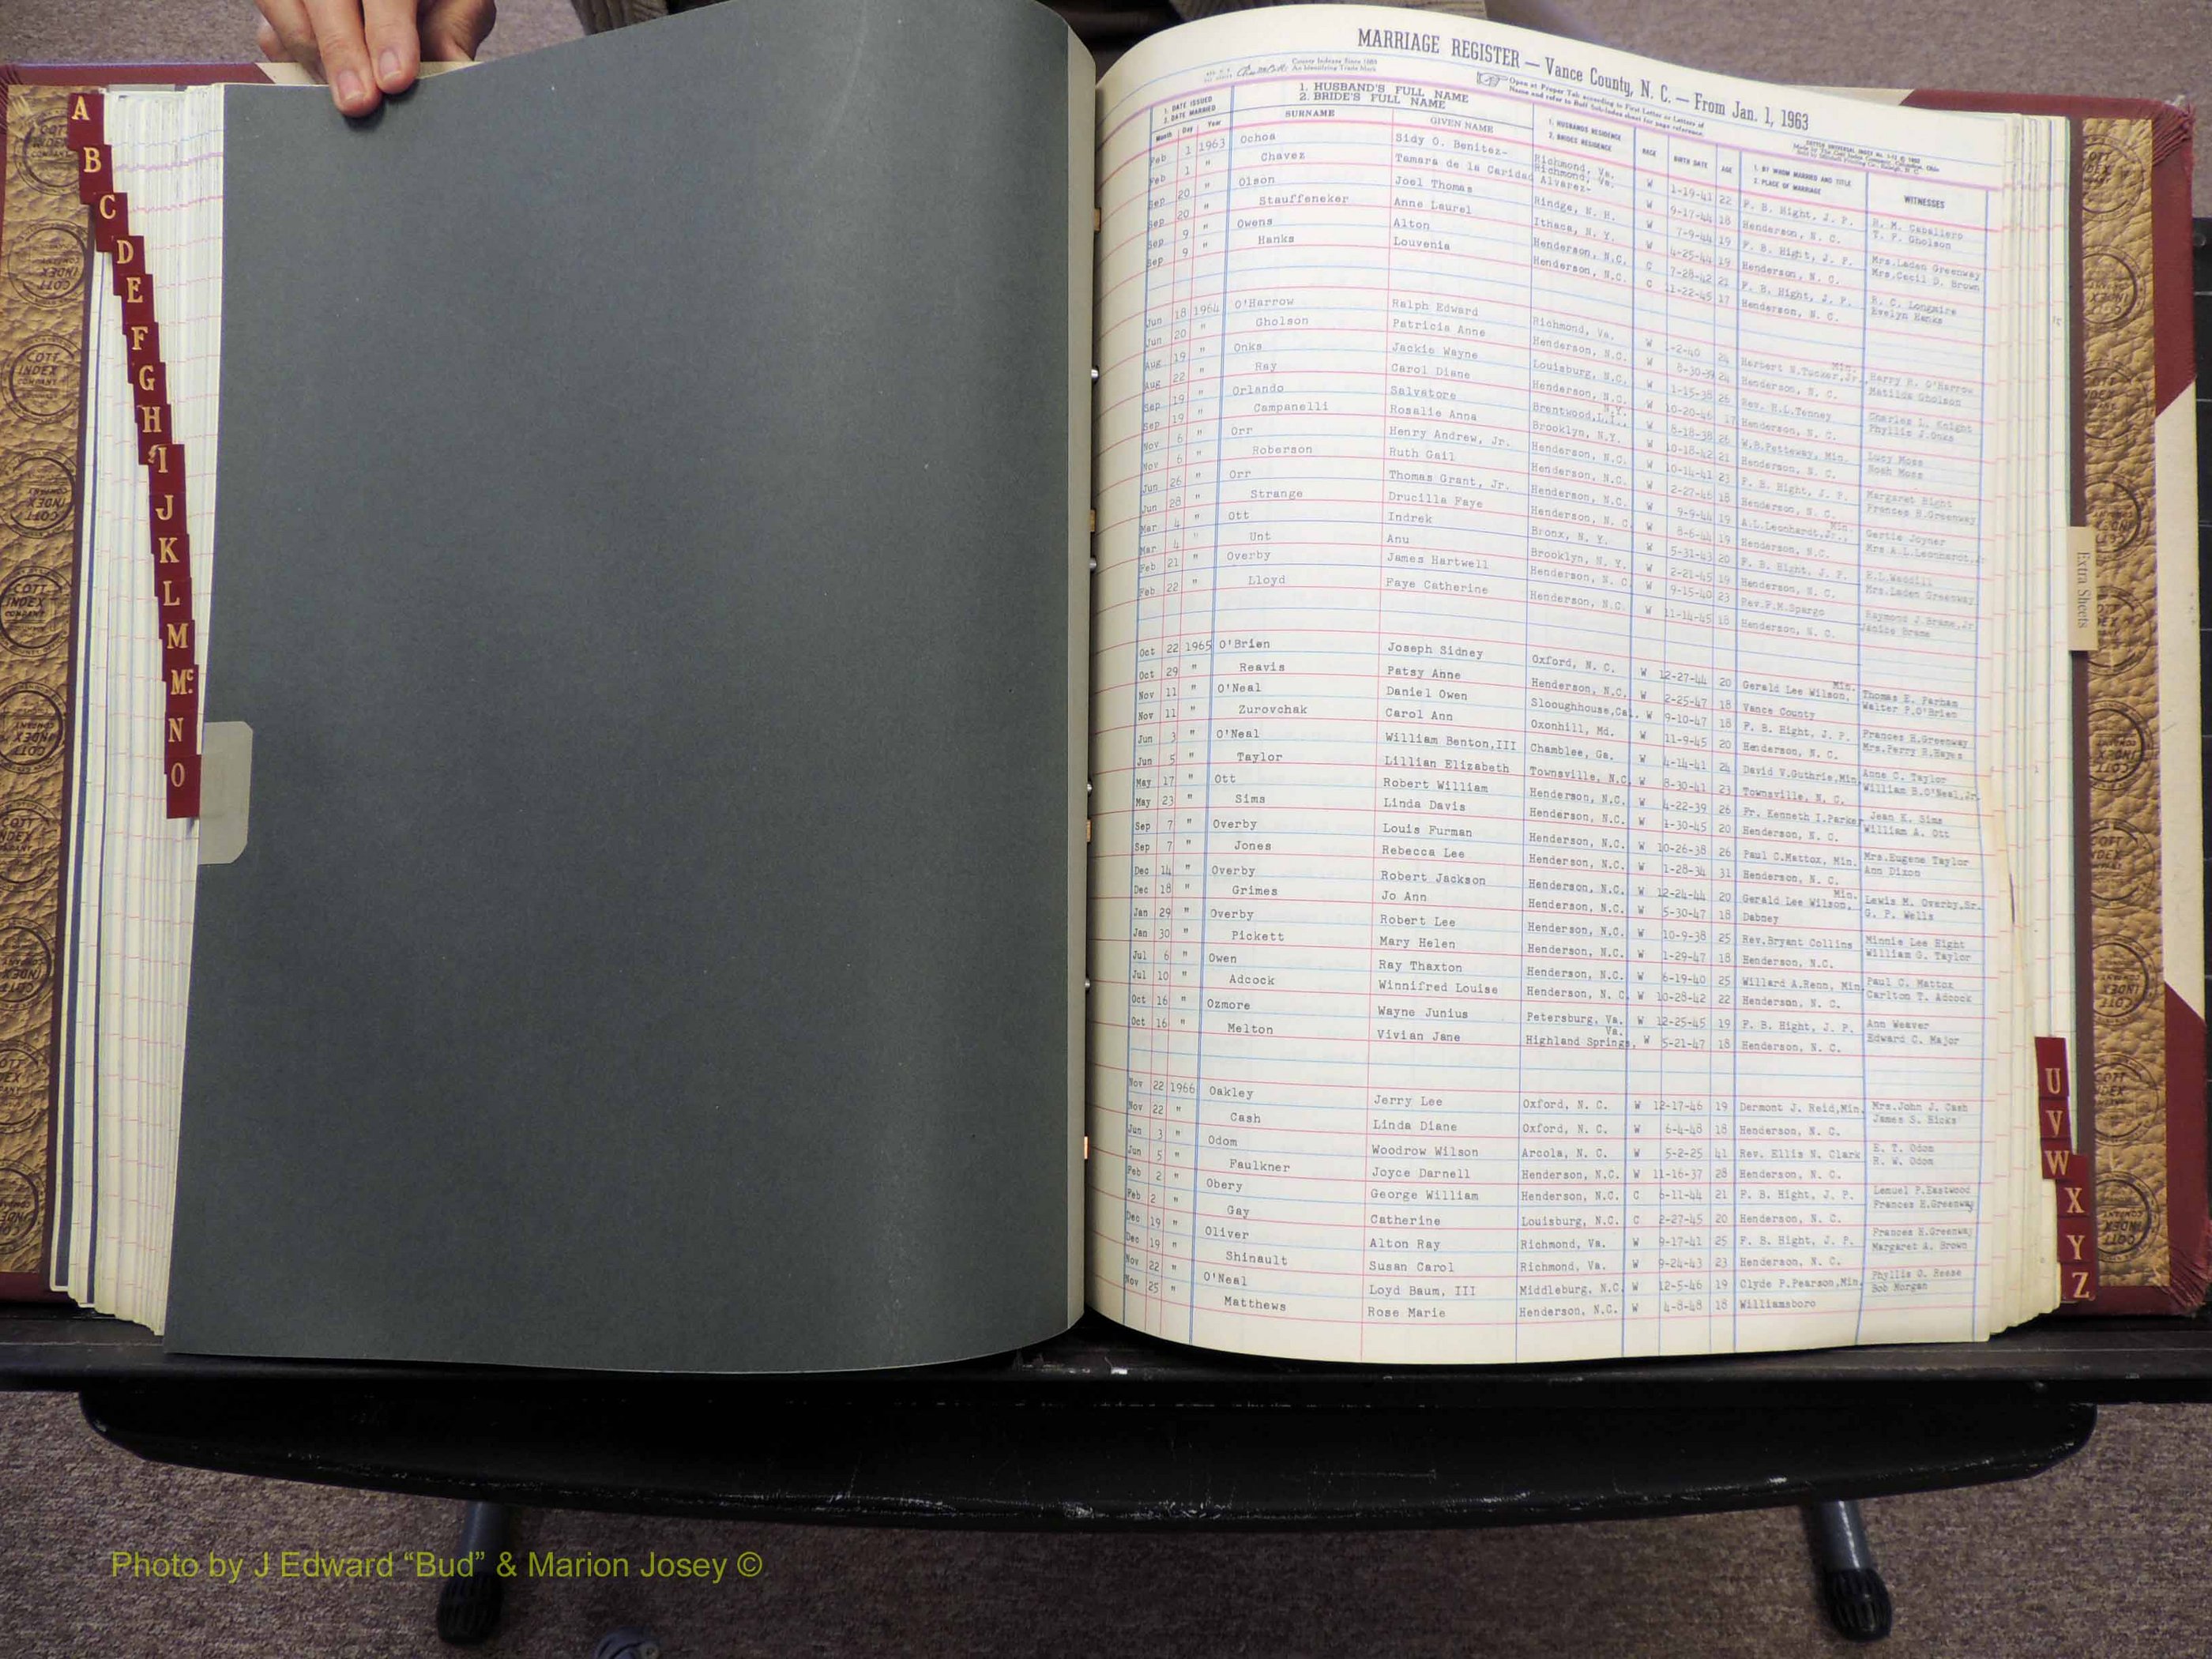 MARRIAGE REGISTER — Vance County, N. C. — From Jan. 1, 1963
County Indexes Since 1888
An Identifying Trade Mark
Open at Proper Tab according to First Letter or Letters of
Name and refer to Buff Sub-Index sheet for page reference.
1. DATE ISSUED 2. DATE MARRIED Month Day Year
1. HUSBAND'S FULL NAME 2. BRIDE'S FULL NAME SURNAME GIVEN NAME
1. HUSBANDS RESIDENCE 2. BRIDES RESIDENCE RACE BIRTH DATE AGE
1. BY WHOM MARRIED AND TITLE 2. PLACE OF MARRIAGE WITNESSES
Feb 1 1963 Ochoa Sidy O. Benitez- Richmond, Va. W 1-19-41 22 F. B. Hight, J. P. R. M. Caballero
Feb 1 " Chavez Tamara de la Caridad Alvarez- Richmond, Va. W 9-17-44 18 Henderson, N. C. T. P. Gholson
Sep 20 " Olson Joel Thomas Rindge, N. H. W 7-9-44 19 F. B. Hight, J. P. Mrs.Laden Greenway
Sep 20 " Stauffeneker Anne Laurel Ithaca, N. Y. W 4-25-44 19 Henderson, N. C. Mrs.Cecil D. Brown
Sep 9 " Owens Alton Henderson, N.C. C 7-28-42 21 F. B. Hight, J. P. R. C. Longmire
Sep 9 " Hanks Louvenia Henderson, N.C. C 11-22-45 17 Henderson, N. C. Evelyn Hanks
Jun 18 1964 O'Harrow Ralph Edward Richmond, Va. W -2-40 24 Herbert N.Tucker,Jr., Min. Harry R. O'Harrow
Jun 20 " Gholson Patricia Anne Henderson, N.C. W 8-30-39 24 Henderson, N. C. Matilda Gholson
Aug 19 " Onks Jackie Wayne Louisburg, N.C. W 1-15-38 26 Rev. H.L.Tenney Charles L. Knight
Aug 22 " Ray Carol Diane Henderson, N.C. W 10-20-46 17 Henderson, N. C. Phyllis J.Onks
Sep 19 " Orlando Salvatore Brentwood,L.I., N.Y. W 8-18-38 26 W.B.Petteway, Min. Lucy Moss
Sep 19 " Campanelli Rosalie Anna Brooklyn, N.Y. W 10-18-42 21 Henderson, N. C. Noah Moss
Nov 6 " Orr Henry Andrew, Jr. Henderson, N.C. W 10-14-41 23 F. B. Hight, J. P. Margaret Hight
Nov 6 " Roberson Ruth Gail Henderson, N.C. W 2-27-46 18 Henderson, N. C. Frances H.Greenway
Jun 26 " Orr Thomas Grant, Jr. Henderson, N.C. W 9-9-44 19 A.L.Leonhardt,Jr., Min. Gertie Joyner
Jun 28 " Strange Drucilla Faye Henderson, N. C. W 8-6-44 19 Henderson, N.C. Mrs A.L.Leonhardt,Jr
Mar 4 " Ott Indrek Bronx, N. Y. W 5-31-43 20 F. B. Hight, J. P. E.L.Weddill
Mar 4 " Unt Anu Brooklyn, N. Y. W 2-21-45 19 Henderson, N. C. Mrs.Laden Greenway
Feb 21 " Overby James Hartwell Henderson, N. C. W 9-15-40 23 Rev.P.M.Spargo Raymond J.Brame,Jr
Feb 22 " Lloyd Faye Catherine Henderson, N.C. W 11-14-45 18 Henderson, N. C. Janice Brame
Oct 22 1965 O'Brien Joseph Sidney Oxford, N. C. W 12-27-44 20 Gerald Lee Wilson, Min. Thomas E. Parham
Oct 29 " Reavis Patsy Anne Henderson, N.C. W 2-25-47 18 Vance County Walter P.O'Brien
Nov 11 " O'Neal Daniel Owen Slooughhouse,Cal. W 9-10-47 18 F. B. Hight, J. P. Frances H.Greenway
Nov 11 " Zurovchak Carol Ann Oxonhill, Md. W 11-9-45 20 Henderson, N. C. Mrs.Perry R.Hayes
Jun 3 " O'Neal William Benton,III Chamblee, Ga. W 4-14-41 24 David V.Guthrie,Min. Anne C. Taylor
Jun 5 " Taylor Lillian Elizabeth Townsville, N.C. W 8-30-41 23 Townsville, N. C. William B.O'Neal,Jr.
May 17 " Ott Robert William Henderson, N.C. W 4-22-39 26 Fr. Kenneth I.Parker Jean K. Sims
May 23 " Sims Linda Davis Henderson, N.C. W 1-30-45 20 Henderson, N. C. William A. Ott
Sep 7 " Overby Louis Furman Henderson, N.C. W 10-26-38 26 Paul C.Mattox, Min. Mrs.Eugene Taylor
Sep 7 " Jones Rebecca Lee Henderson, N.C. W 1-28-34 31 Henderson, N. C. Ann Dixon
Dec 14 " Overby Robert Jackson Henderson, N.C. W 12-24-44 20 Gerald Lee Wilson, Min. Lewis M. Overby,Sr.
Dec 18 " Grimes Jo Ann Henderson, N.C. W 5-30-47 18 Dabney G. P. Wells
Jan 29 " Overby Robert Lee Henderson, N.C. W 10-9-38 25 Rev.Bryant Collins Minnie Lee Hight
Jan 30 " Pickett Mary Helen Henderson, N.C. W 1-29-47 18 Henderson, N.C. William G. Taylor
Jul 6 " Owen Ray Thaxton Henderson, N.C. W 6-19-40 25 Willard A.Renn, Min. Paul C. Mattox
Jul 10 " Adcock Winnifred Louise Henderson, N. C. W 10-28-42 22 Henderson, N. C. Carlton T. Adcock
Oct 16 " Ozmore Wayne Junius Petersburg, Va. W 12-25-45 19 F. B. Hight, J. P. Ann Weaver
Oct 16 " Melton Vivian Jane Highland Springs, Va. W 5-21-47 18 Henderson, N. C. Edward C. Major
Nov 22 1966 Oakley Jerry Lee Oxford, N. C. W 12-17-46 19 Dermont J. Reid,Min. Mrs.John J. Cash
Nov 22 " Cash Linda Diane Oxford, N. C. W 6-4-48 18 Henderson, N. C. James S. Hicks
Jun 3 " Odom Woodrow Wilson Arcola, N. C. W 5-2-25 41 Rev. Ellis N. Clark E. T. Odom
Jun 5 " Faulkner Joyce Darnell Henderson, N.C. W 11-16-37 28 Henderson, N. C. R. W. Odom
Feb 2 " Obery George William Henderson, N.C. C 6-11-44 21 F. B. Hight, J. P. Lemuel P.Eastwood
Feb 2 " Gay Catherine Louisburg, N.C. C 2-27-45 20 Henderson, N. C. Frances H.Greenway
Dec 19 " Oliver Alton Ray Richmond, Va. W 9-17-41 25 F. B. Hight, J. P. Frances H.Greenway
Dec 19 " Shinault Susan Carol Richmond, Va. W 9-24-43 23 Henderson, N. C. Margaret A. Brown
Nov 22 " O'Neal Loyd Baum, III Middleburg, N.C. W 12-5-46 19 Clyde P.Pearson,Min. Phyllis O. Reese
Nov 25 " Matthews Rose Marie Henderson, N.C. W 4-8-48 18 Williamsboro Bob Morgan
A
B
C
D
E
F
G
H
I
J
K
L
M
Mc.
N
O
Extra Sheets
U
V
W
X
Y
Z
COTT INDEX COMPANY
Photo by J Edward “Bud” & Marion Josey ©